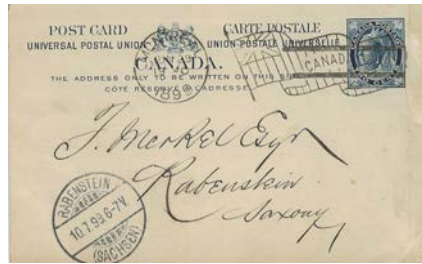 POST CARD CARTE POSTALE
UNIVERSAL POSTAL UNION UNION POSTALE UNIVERSELLE
CANADA.
THE ADDRESS ONLY TO BE WRITTEN ON THIS
CÔTÉ RÉSERVÉ
CANADA
J. Merkel Esqr
Rabenstein
Saxony
RABENSTEIN
10.7.99.6-7V.
(SACHSEN)